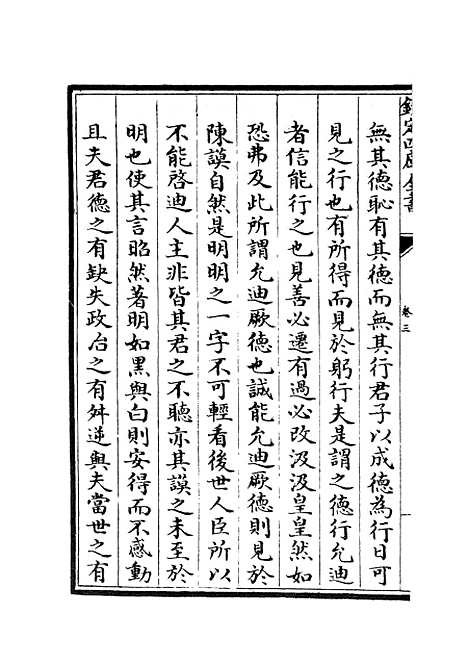 欽定四庫全書
卷三
無其德恥有其德而無其行君子以成德為行日可
見之行也有所得而見於躬行夫是謂之德行允迪
者信能行之也見善必遷有過必改汲汲皇皇然如
恐弗及此所謂允迪厥德也誠能允迪厥德則見於
陳謨自然是明明之一字不可輕看後世人臣所以
不能啓迪人主非皆其君之不聽亦其謨之未至於
明也使其言昭然著明如黑與白則安得而不感動
且夫君德之有缺失政治之有舛逆與夫當世之有